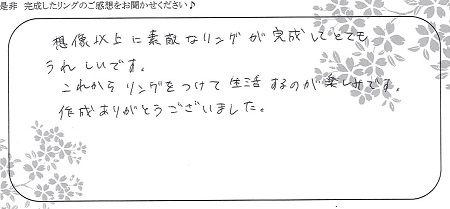 是非 完成したリングのご感想をお聞かせください♪
想像以上に素敵なリングが完成してとても
うれしいです。
これからリングをつけて生活するのが楽しみです。
作成ありがとうございました。